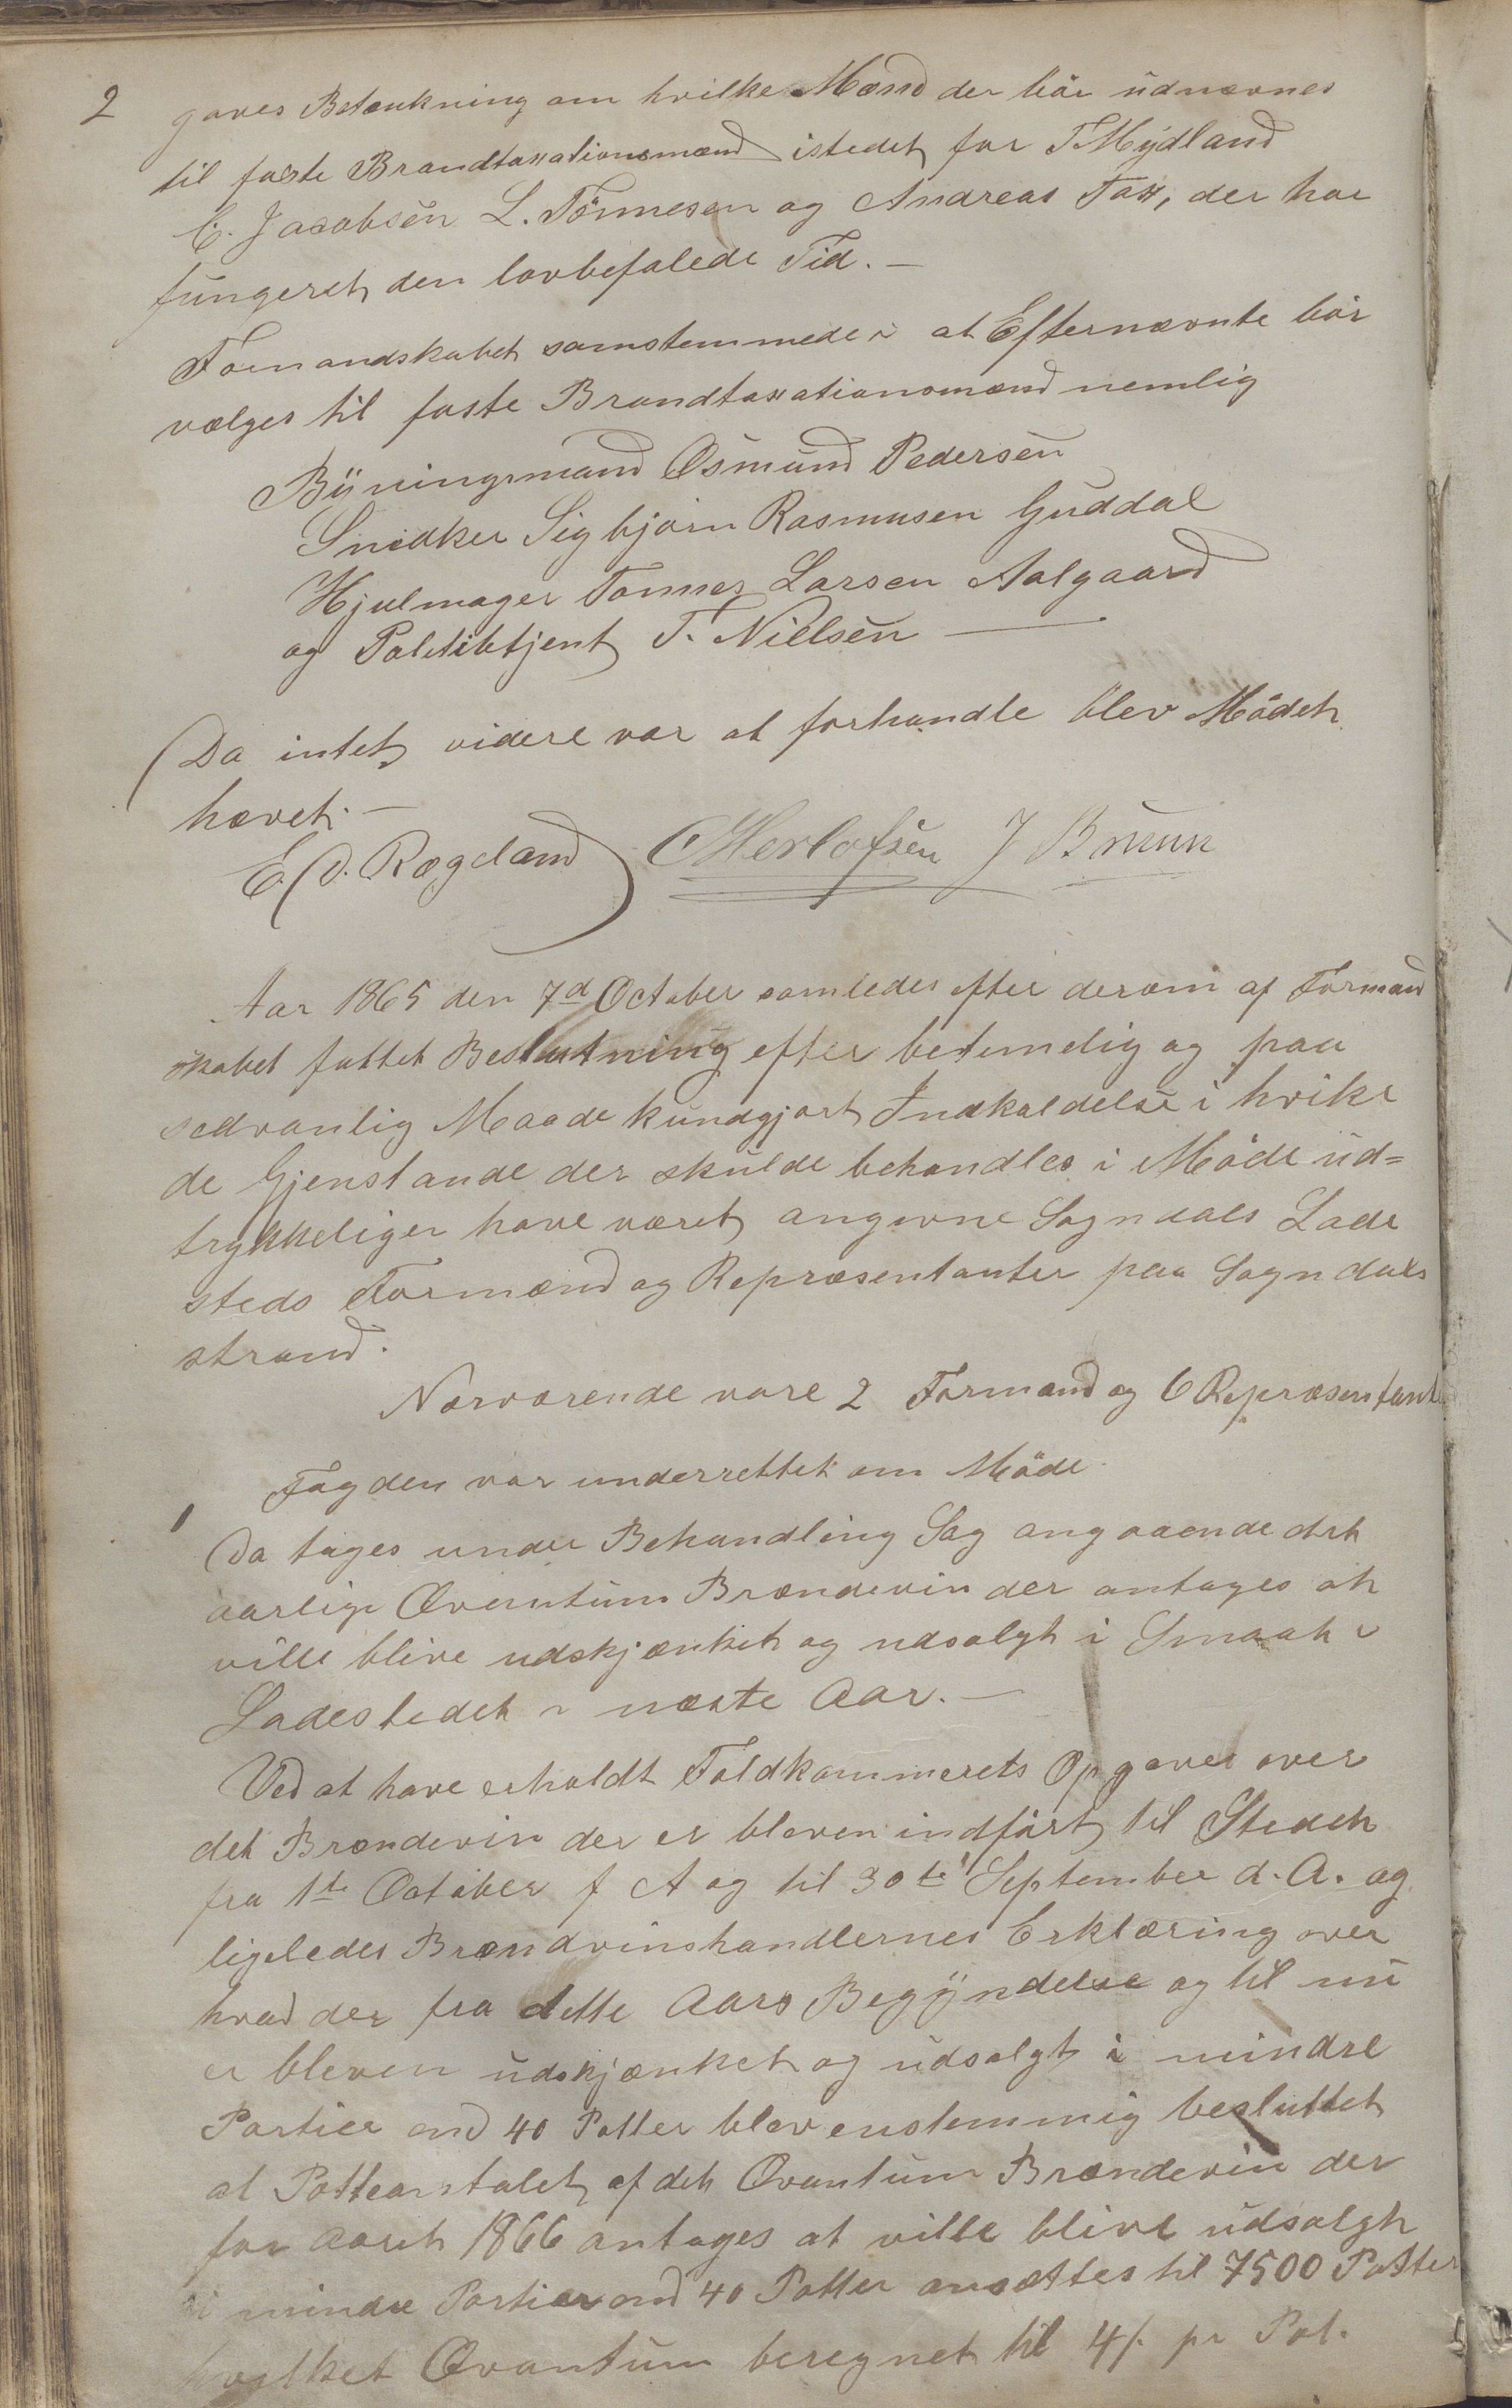 2 gaves Betænkning om hvilke Mænd der bör udnævnes
til faste Brandtaxationsmænd istedet for T Mydland
C. Jacobsen L. Tönnesen og Andreas Tax, der har
fungeret den lovbefalede Tid. —
Formandskabet samstemmede i at Efternævnte bör
vælges til faste Brandtaxationsmænd nemlig
Bygningsmand Osmund Pedersen
Snedker Sigbjörn Rasmusen Guddal
Hjulmager Tonnes Larsen Aalgaard
og Politibetjent T. Nielsen —
Da intet videre var at forhandle blev Mödet
hævet. —
E. D. Rægeland Herlofsen J Bruun
Aar 1865 den 7d October samledes efter derom af Formand
skabet fattet Beslutning efter betimelig og paa
sedvanlig Maade kundgjort Indkaldelse i hvilke
de Gjenstande der skulde behandles i Möde ud=
trykkeliger have været angivne Sogndals Lade
steds Formænd og Repræsentanter paa Sogndals
strand.
Nærværende vare 2 Formænd og 6 Repræsentant
Fogden var underrettet om Möde
1
Da toges under Behandling Sag angaaende det
aarlige Qvantum Brændeviin der antages at
ville blive udskjænket og udsalgt i Smaat i
Ladestedet i næste Aar. —
Ved at have erholdt Toldkammerets Opgaver over
det Brændevin der er bleven indfört til Stedet
fra 1te October f A og til 30te September d. A. og
ligeledes Brændvinshandlernes Erklæring over
hvad der fra dette Aars Begyndelse og til nu
er bleven udskjænket og udsalgt i mindre
Partier end 40 Potter blev enstemmig besluttet
at Potteantalet af det Qvantum Brændevin der
for Aaret 1866 antages at ville blive udsalgt
i mindre Partier end 40 Potter ansættes til 7500 Potter
hvilket Qvantum beregnet til 4/. pr Pot.